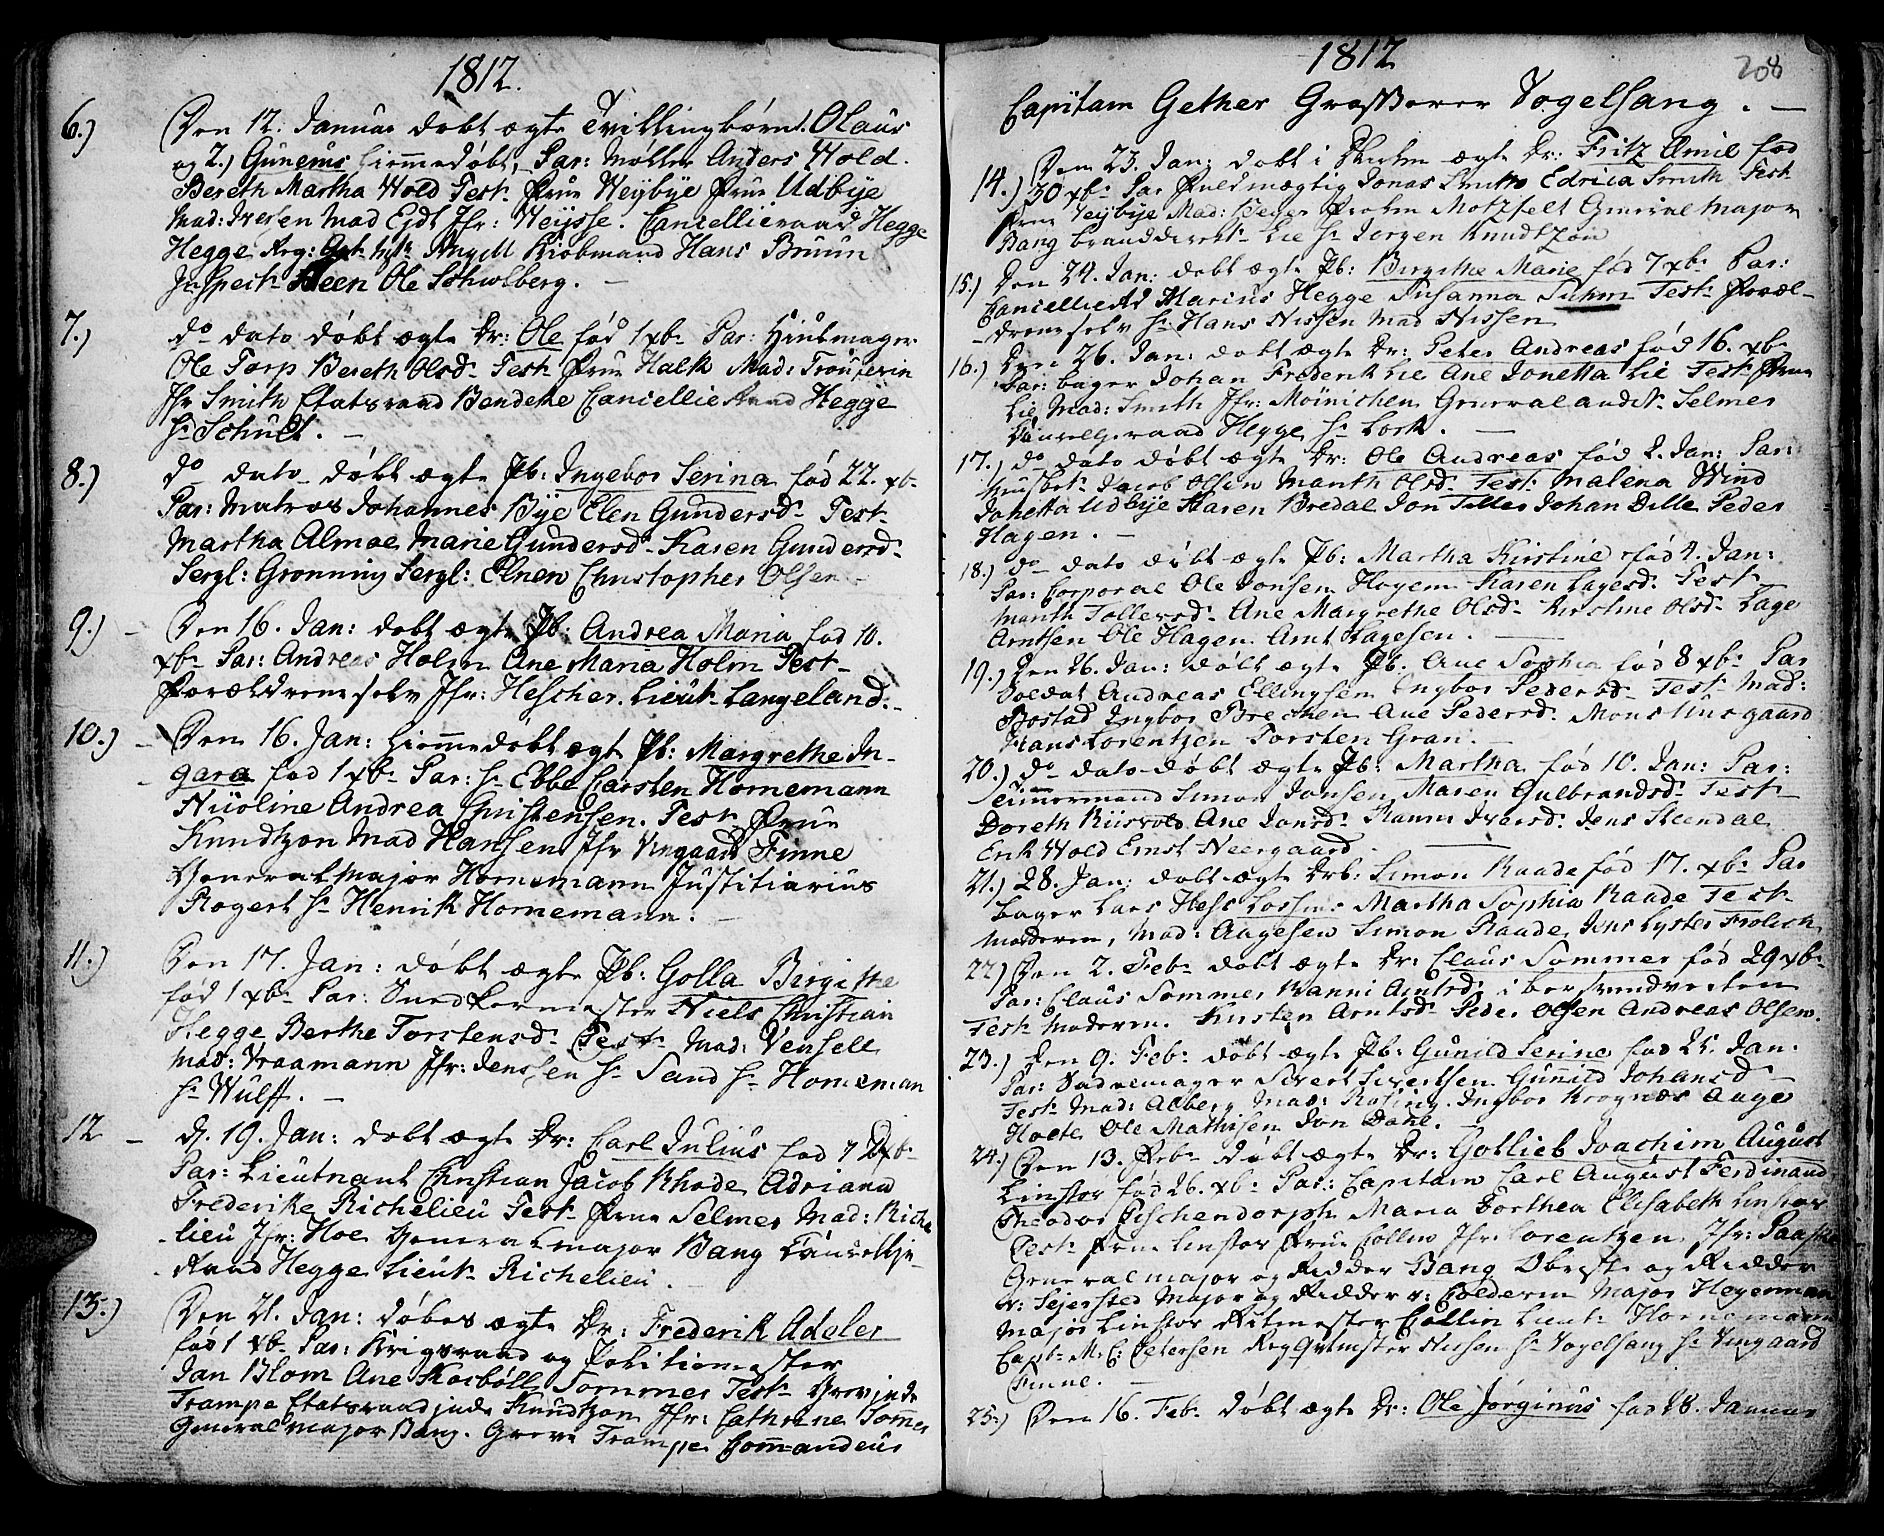 1812.
6.) Den 12. Januar døbt ægte Tvillingbørn 1. Olaus
og 2.) Gunerius hiemmedøbt, Par: Møller Anders Wold
Bereth Martha Wold Test. Frue Weybye Frue Udbye
Mad: Iversen Mad Eydt Jfr: Weysse. Cancellieraad Hegge
Hegge Reg: Angell Kiøbmand Hans Bruun
Inspect. Steen Ole Scholberg.
7.) do dato døbt ægte Dr: Ole fød 1 xbr Par: Hiulmager
Ole Torp Bereth Olsd. Test. Frue Halk Mad:
Jfr Smith Etatsraad Bendeke Cancellie Raad Hegge
Hr Schult.
8.) do dato døbt ægte Pb: Ingebor Serina fød 22. xbr
Par: Matros Johannes Bye Elen Gundersd. Test.
Martha Almoe Marie Gundersd. Karen Gundersd.
Sergt: Grønning Sergt: Elnen Christopher Olsen
9.) Den 16. Jan: døbt ægte Pb: Andrea Maria fød 10.
xbr Par: Andreas Holm Ane Maria Holm Test.
Forældrene selv Jfr: Hescher. Lieut. Langeland.
10.) Den 16. Jan: hiemmedøbt ægt Pb: Margrethe In-
gara fød 1 xbr Par: Hr Ebbe Carsten Hornemann
Nicoline Andrea Christensen. Test. Frue
Knudtzon Mad Hansen Jfr Vingaard Finne
General Major Hornemann Justitiarius
Rogert Hr Henrik Hornemann.
11.) Den 17. Jan: døbt ægte Pb: Golla Birgithe
fød 1 xbr Par: Snedkermester Niels Christian
Hegge Berthe Torstensd. Test. Mad: Vensell
Mad: Vraamann Jfr: Jenssen Hr Sand Hr Horneman
Hr Wulff.
12 d. 19. Jan: døbt ægte Dr: Carl Julius fød xbr
Par: Lieutnant Christian Jacob Rhode Adriana
Frederike Richelieu Test. Frue Selmer Mad: Riche
lieu Jfr: Hoe Generalmajor Bang Cancellie-
Raad Hegge Lieut. Richelieu.
13.) Den 21. Jan: døbes ægte Dr: Frederik Adeler
fød 1 xbr Par: Krigsraad og Politiemester
Jan Blom Ane Kosbøll Sommer Test.
Trampe Etatsraadinde Knudtzon Jfr: Cathrine Somer
General Major Bang. Greve Trampe Commandeur
1812
208
Capitain Gether Grosserer Vogelsang.
14.) Den 23. Jan: døbt i Kirken ægte Dr: Fritz Emil fød
30 xbr Par Fuldmægtig Jonas Smith Edrica Smith Test.
Frue Weybye Mad: Beyer Frøken Motzfelt General Major
Bang branddirect. Lie Hr Jørgen Knudtzon
15.) Den 24. Jan: døbt ægte Pb: Birgithe Marie fød 7 xbr Par:
Cancellierd Marius Hegge Susanna Suhm Test. Foræl-
drene selv Hr Hans Nissen Mad Nissen
16.) Den 26. Jan: døbt ægte Dr: Peter Andreas fød 16. xbr
Par: bager Johan Frederik Lie Ane Jonetta Lie Test. Frue
Lie Mad: Smith Jfr: Møinichen Generalaudit. Selmer
Cancellieraad Hegge Hr Lork.
17.) do dato døbt ægte Dr: Ole Andreas fød 2. Jan: Par:
Musket. Jacob Olsen Marith Olsd. Test. Malena Wind
Jonetta Udbye Karen Bredal Jon Tiller Johan Dille Peder
Hagen.
18.) do dato døbt ægte Pb: Martha Kirstine fød 4. Jan:
Par: Corporal Ole Jonsen Hoyem Karen Lagesd. Test.
Marith Tollersd. Ane Margrethe Olsd. Kirstine Olsd. Lage
Arntsen Ole Hagen. Arnt Lagesen.
19.) Den 26. Jan: døbt ægte Pb. Ane Sophia fød 8 xbr Par
Soldat Andreas Ellingsen Ingbor Pedersd. Test. Mad:
Rostad Ingbor Brechen Ane Pedersd. Mons
Hans Lorentzen Torsten Gran.
20.) do dato døbt ægte Pb: Martha fød 10. Jan: Par:
Tømmermand Simon Jonsen Maren Gulbrandsd. Test.
Doreth Riisvold Ane Jonsd. Ranni Ivarsd. Jens Steendal
Erik Wold Ernst Neergaard.
21.) 28. Jan: døbt ægte Drb: Simon Raade fød 17. xbr Par
bager Lars Hess Martha Sophia Raade Test.
Moderen, Mad: Augesen Simon Raade, Jens Lyster Frolich
22) Den 2. Feb. døbt ægte Dr: Claus Sommer fød 29 xbr
Par: Claus Sommer Ranni Arntsd. i
Test. Moderen. Kirsten Arntsd. Peder Olsen Andreas Olsen.
23.) Den 9. Feb. døbt ægte Pb: Gunild Serine fød 25. Jan.
Par: Sadelmager Sivert Sivertsen Gunild Johansd
Test. Mad: Alberg Mad: Rosing. Ingbor Krognæs Auge
Holte Ole Mathisen Jon Dahl.
24.) Den 13. Feb. døbt ægte Dr: Gotlieb Joachim August
Linstor fød 26. xbr Par: Capitain Carl August Ferdinand
Theodor Tischendorph Maria Dorthea Elisabeth Linstor
Test. Frue Linstor Frue Collin Jfr: Lorentzen Jfr:
General major og Ridder Bang Oberste og Ridder
v: Sejersted Major og Ridder v: Coldevin Major Heyerman
Major Linstor Ritmester Collin Lieut. Hornemann
Capt. M. C. Petersen Reg Qvtmster Nissen Hr Vogelsang Hr Vingaard
Finne.
25.) Den 16. Feb. døbt ægte Dr: Ole Jørginus fød 28. Januar